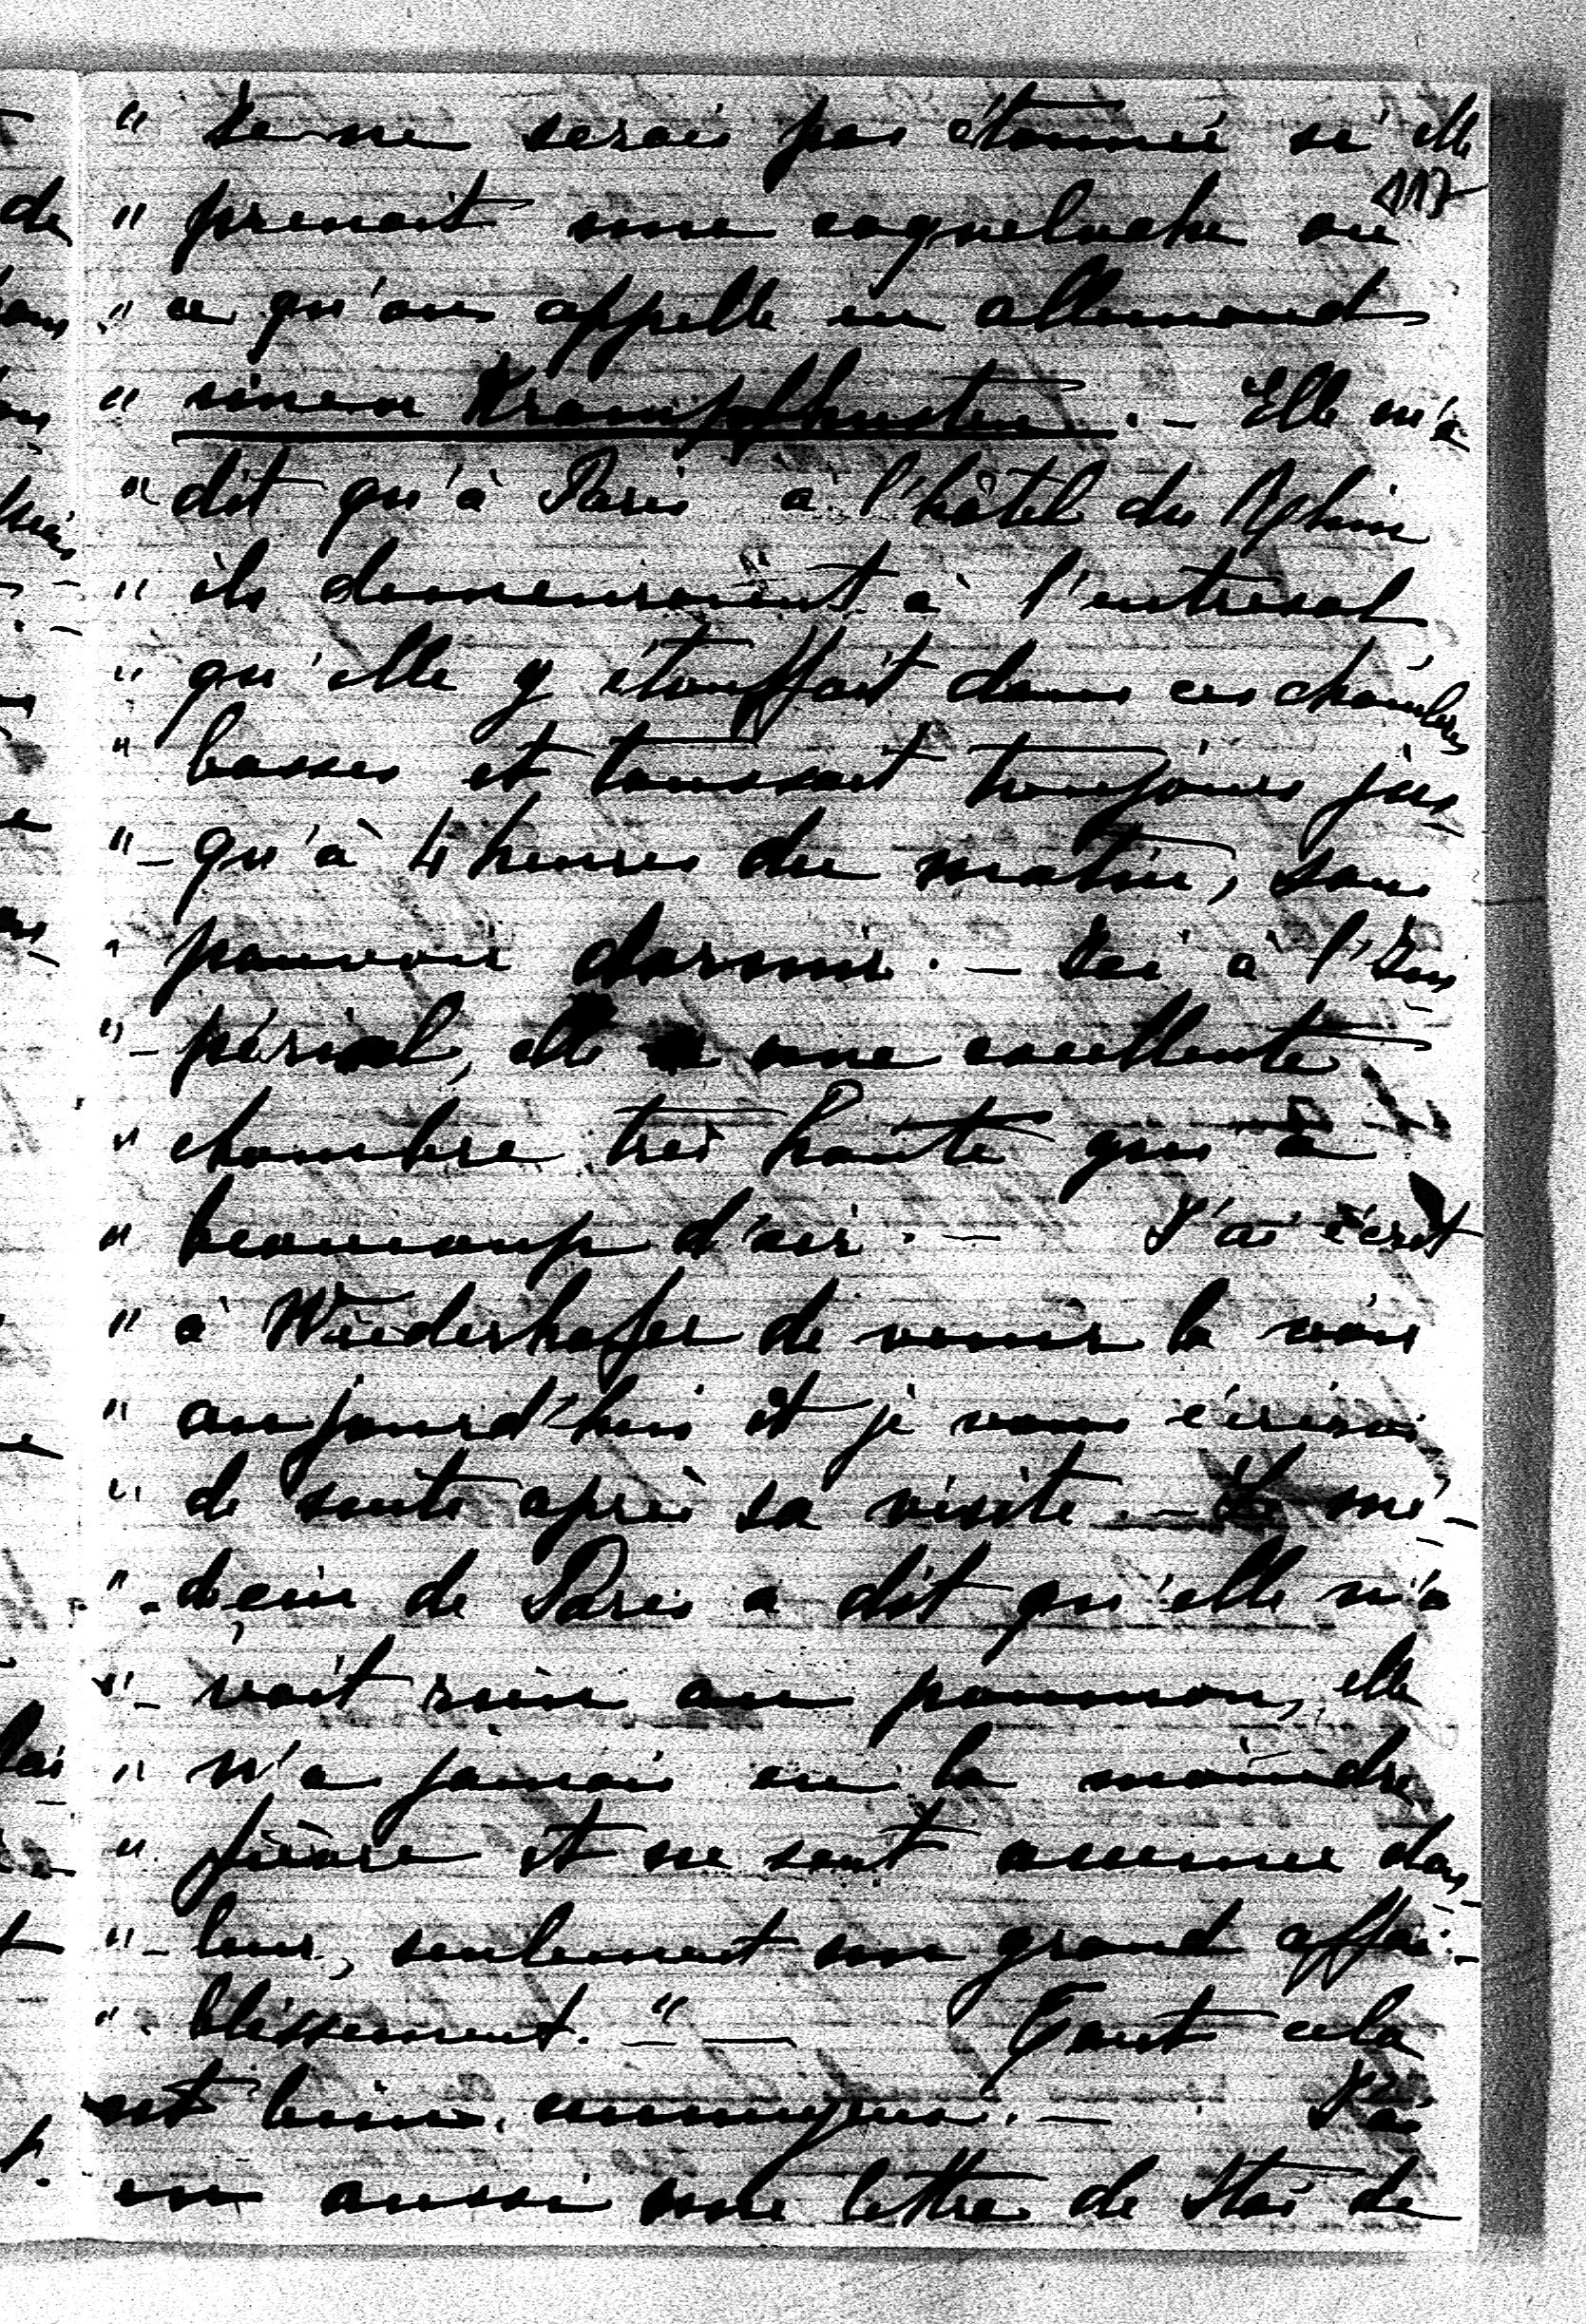 " Je ne serais pas étonnée si elle
117
" prenait une coqueluche ou
" ce qu'on appelle en allemand
" einen Krampfhusten . – Elle m'a
" dit qu'à Paris à l'hôtel du Rhin
" ils demeuraient à l'entresol
" qu'elle y étouffait dans ces chambres
" basses et toussait toujours jus-
" - qu'à 4 heures du matin, sans
" pouvoir dormir. – Ici à l'Im-
" - périal, elle a une excellente
" chambre très haute qui a
" beaucoup d'air. – J'ai écrit
" à Wiederhofer de venir la voir
" aujourd'hui et je vous écrirai
" de suite après sa visite. – Le mé-
" - decin de Paris a dit qu'elle n'a-
" - vait rien au poumon, elle
" n'a jamais eu la moindre
" fièvre et ne sent aucune dou-
" - leur, seulement un grand affai-
" - blissement. " — Tout cela
est bien ennuyeux. – J'ai
eu aussi une lettre de Stoi de